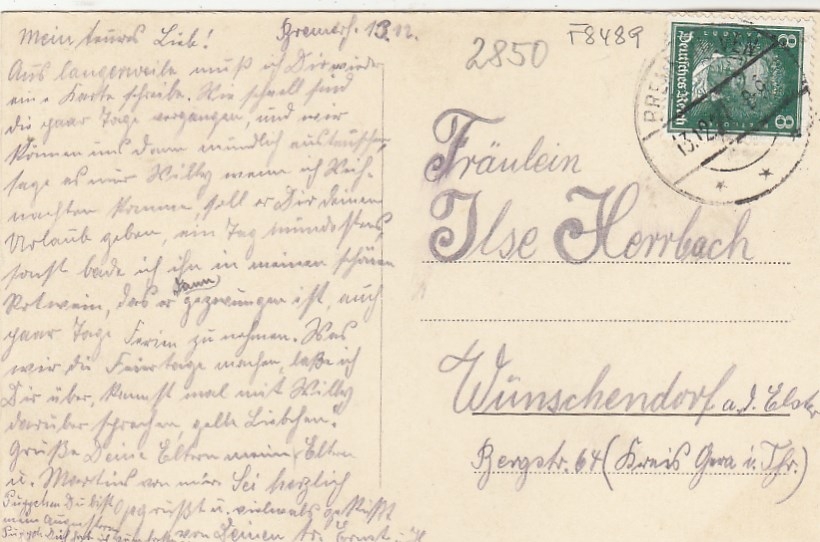 Mein teures Lieb! Bremerh. 13.12.
Aus langerweile muß ich Dir wieder
eine Karte schreibe. Wie schnell sind
die paar Tage vergangen, und wir
können uns dann mündlich austauschen,
sage es nur Willy wenn ich Weih-
nachten komme, soll er Dir deinen
Urlaub geben, ein Tag mindestens,
sonst bade ich ihn in meinen schönen
Rotwein, das er dann gezwungen ist, auch
paar Tage Ferien zu nehmen. Was
wir die Feiertage machen, laße ich
Dir über, kannst mal mit Willy
darüber sprechen, gelle Liebchen.
Grüße Deine Eltern meine Eltern
u. Martins von mir Sei herzlich
gegrüßt u. vielmals geküßt
von Deinen Ernst
Puppchen Du bist
mein Augenstern
Puppch. Dich hab ich zum
2850
F8489
Deutsches Reich
8
8
13.12.
Fräulein
Ilse Herrbach
Wünschendorf a. d. Elster
Bergstr. 64 (Kreis Gera i. Thr.)